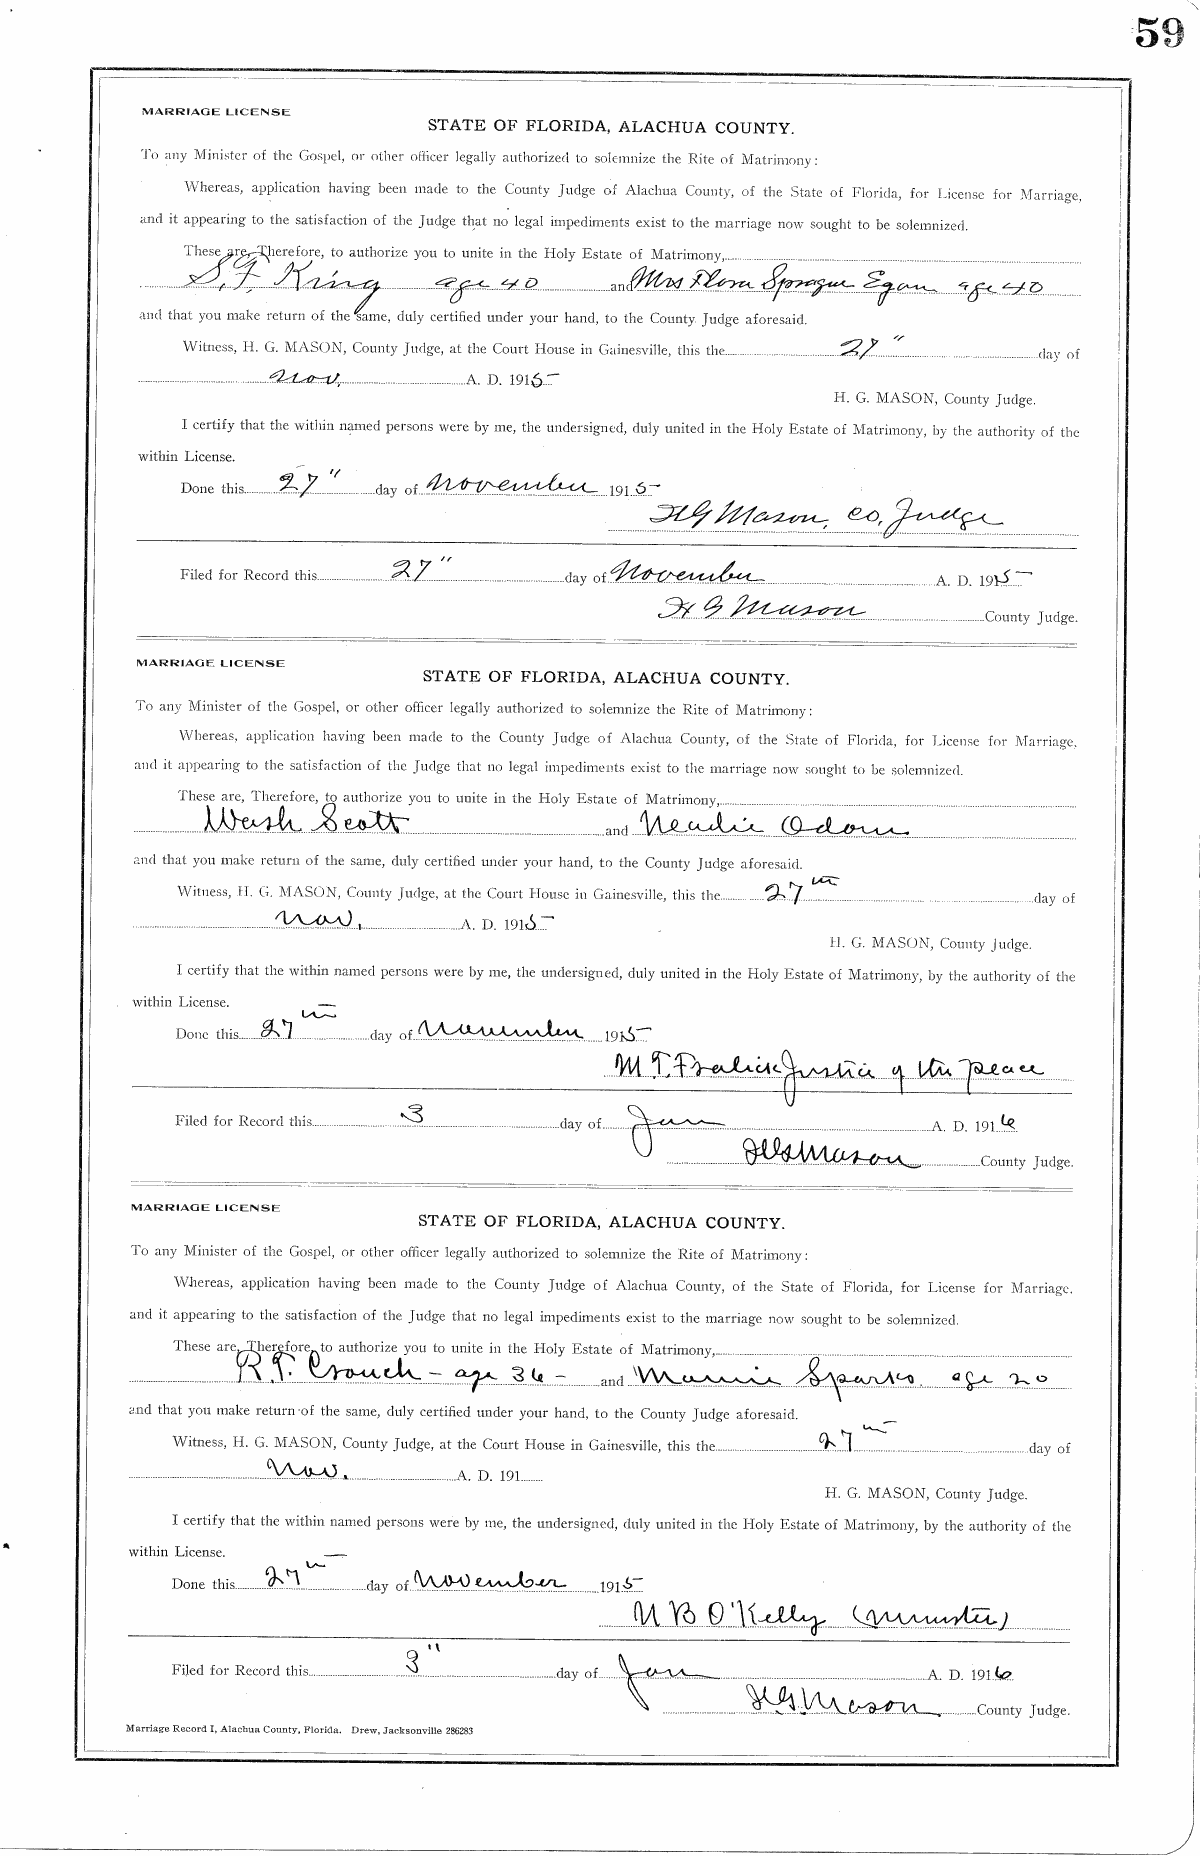 59
MARRIAGE LICENSE
STATE OF FLORIDA, ALACHUA COUNTY.
To any Minister of the Gospel, or other officer legally authorized to solemnize the Rite of Matrimony:
Whereas, application having been made to the County Judge of Alachua County, of the State of Florida, for License for Marriage,
and it appearing to the satisfaction of the Judge that no legal impediments exist to the marriage now sought to be solemnized.
These are, Therefore, to authorize you to unite in the Holy Estate of Matrimony,
S. F. King age 40 and Mrs Flora Sprague Egan age 40
and that you make return of the same, duly certified under your hand, to the County Judge aforesaid.
Witness, H. G. MASON, County Judge, at the Court House in Gainesville, this the 27" day of
Nov. A. D. 1915
H. G. MASON, County Judge.
I certify that the within named persons were by me, the undersigned, duly united in the Holy Estate of Matrimony, by the authority of the
within License.
Done this 27" day of November 1915
H G Mason, Co, Judge
Filed for Record this 27" day of November A. D. 1915
H G Mason County Judge.
MARRIAGE LICENSE
STATE OF FLORIDA, ALACHUA COUNTY.
To any Minister of the Gospel, or other officer legally authorized to solemnize the Rite of Matrimony:
Whereas, application having been made to the County Judge of Alachua County, of the State of Florida, for License for Marriage,
and it appearing to the satisfaction of the Judge that no legal impediments exist to the marriage now sought to be solemnized.
These are, Therefore, to authorize you to unite in the Holy Estate of Matrimony,
Wash Scott and Neadie Odom
and that you make return of the same, duly certified under your hand, to the County Judge aforesaid.
Witness, H. G. MASON, County Judge, at the Court House in Gainesville, this the 27th day of
Nov, A. D. 1915
H. G. MASON, County Judge.
I certify that the within named persons were by me, the undersigned, duly united in the Holy Estate of Matrimony, by the authority of the
within License.
Done this 27th day of November 1915
M. T. Fralick Justice of the peace
Filed for Record this 3 day of Jan A. D. 1916
H G Mason County Judge.
MARRIAGE LICENSE
STATE OF FLORIDA, ALACHUA COUNTY.
To any Minister of the Gospel, or other officer legally authorized to solemnize the Rite of Matrimony:
Whereas, application having been made to the County Judge of Alachua County, of the State of Florida, for License for Marriage.
and it appearing to the satisfaction of the Judge that no legal impediments exist to the marriage now sought to be solemnized.
These are, Therefore, to authorize you to unite in the Holy Estate of Matrimony,
R. T. Crouch - age 36 - and Mamie Sparks. age 20
and that you make return of the same, duly certified under your hand, to the County Judge aforesaid.
Witness, H. G. MASON, County Judge, at the Court House in Gainesville, this the 27th day of
Nov. A. D. 191
H. G. MASON, County Judge.
I certify that the within named persons were by me, the undersigned, duly united in the Holy Estate of Matrimony, by the authority of the
within License.
Done this 27th day of November 1915
U B O'Kelly (minister)
Filed for Record this 3" day of Jan A. D. 1916
H. G. Mason County Judge.
Marriage Record I, Alachua County, Florida. Drew, Jacksonville 286283